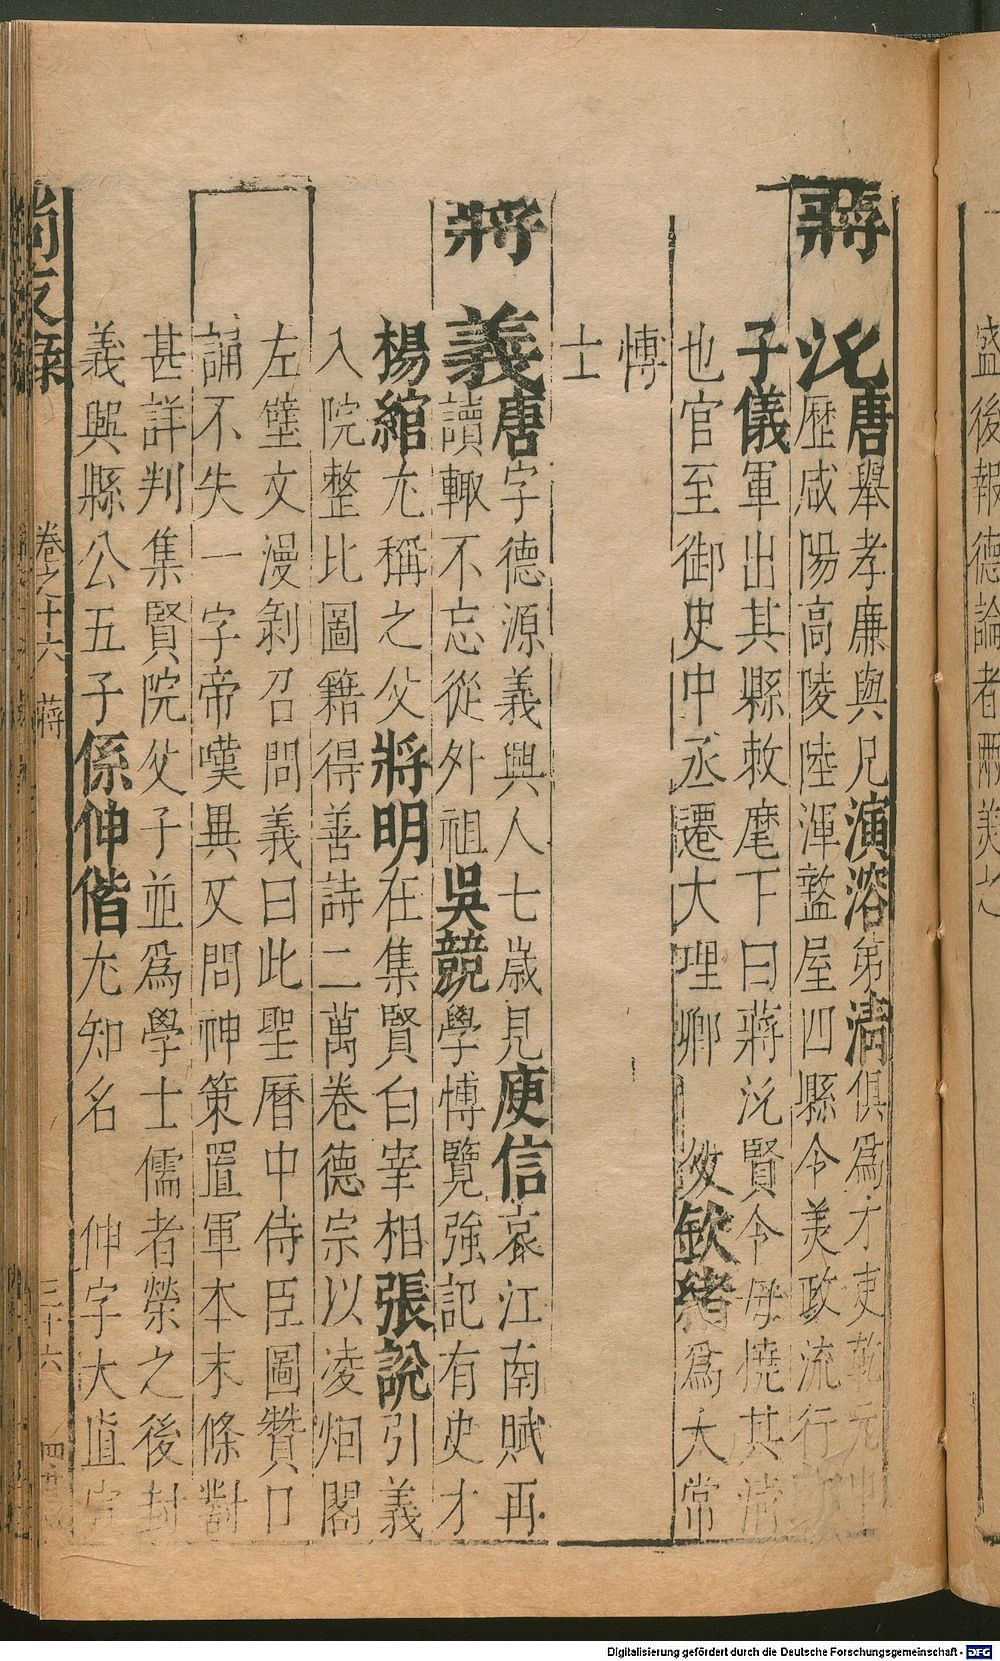 蔣沇唐舉孝廉與兄演溶弟清俱爲才吏乾元中
歷咸陽高陵陸渾盩屋四縣令美政流行郭
子儀軍出其縣敕麾下曰蔣沇賢令毋撓其清
也官至御史中丞遷大理卿 㳊欽緒爲大常
博
士
將義唐字德源義興人七歲見庾信哀江南賦再
讀輙不忘從外祖吳競學博覽強記有史才
楊綰尤稱之父將明在集賢白宰相張說引義
入院整比圖籍得善詩二萬卷德宗以凌烟閣
左壁文漫剝召問義曰此聖曆中侍臣圖贊口
誦不失一字帝嘆異又問神策置軍本末條對
甚詳判集賢院父子並爲學士儒者榮之後封
義興縣公五子係伸偕尤知名 伸字大直
尚友錄 卷之十六 蔣 三十六
盛後報德論者兩美之
Digitalisierung gefördert durch die Deutsche Forschungsgemeinschaft - DFG